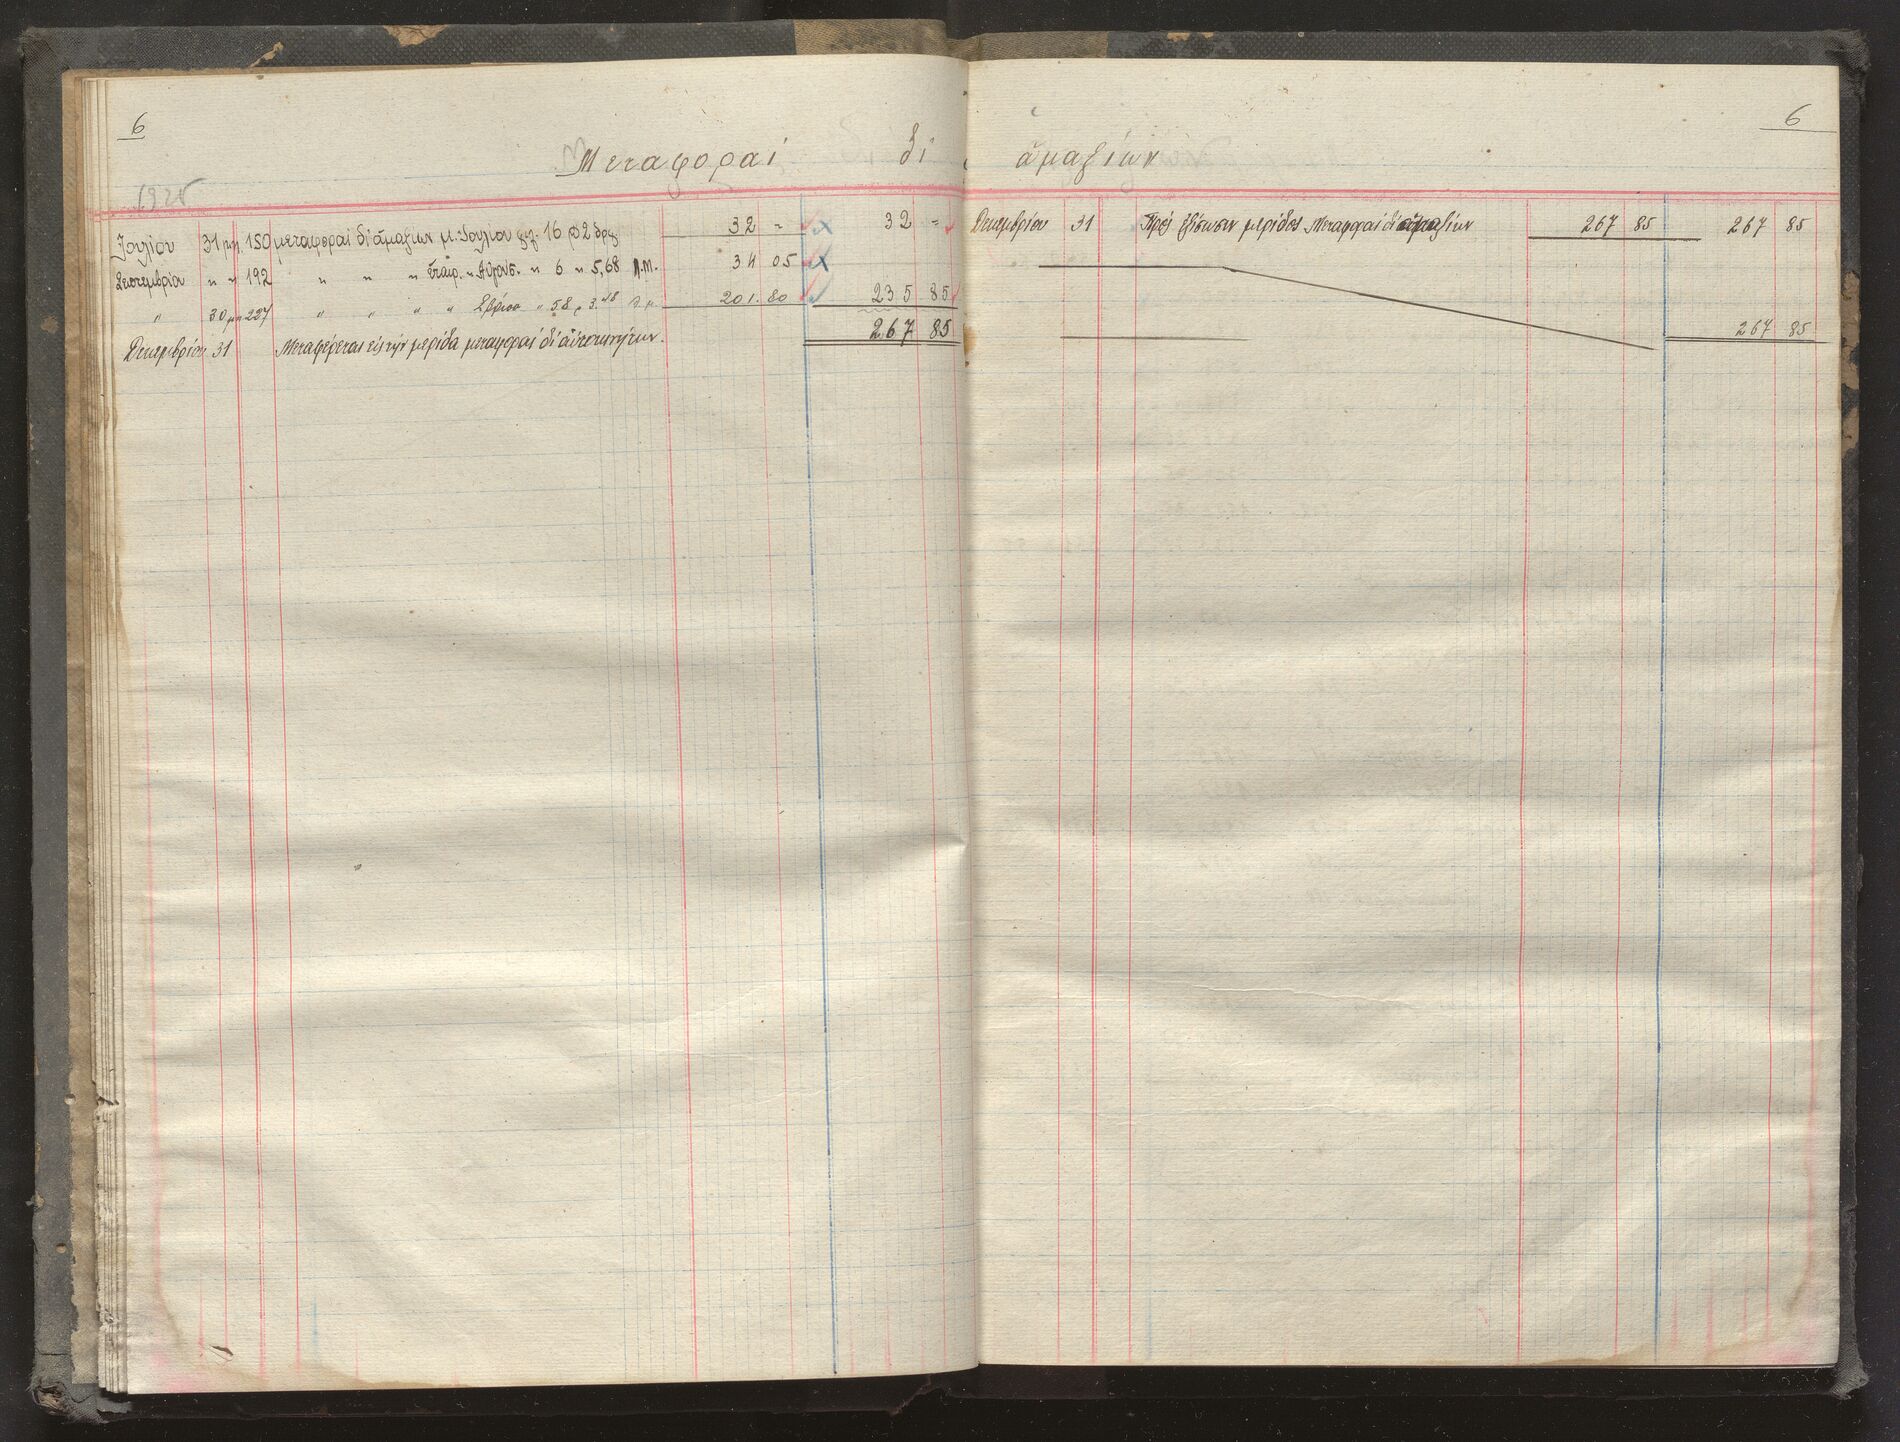 6
6
Μεταφοραί δι' ἁμαξίων
Ἰουλίου 31 150 μεταφοραί δι' ἁμαξίων μ. Ἰουλίου 16 2 δρχ 32 = 32 =
Σεπτεμβρίου " " 192 " " " Αὐγούς. " 6 " 5,68 34 05
" 30 227 " " " " 58 3.48 201.80 235 85
267 85
Δεκεμβρίου 31 Μεταφέρεται εἰς τήν μερίδα μεταφοραί δι' αὐτοκινήτων.
Δεκεμβρίου 31 Πρός ἐξίσωσιν μερίδος Μεταφοραί δι' ἁμαξίων 267 85 267 85
267 85